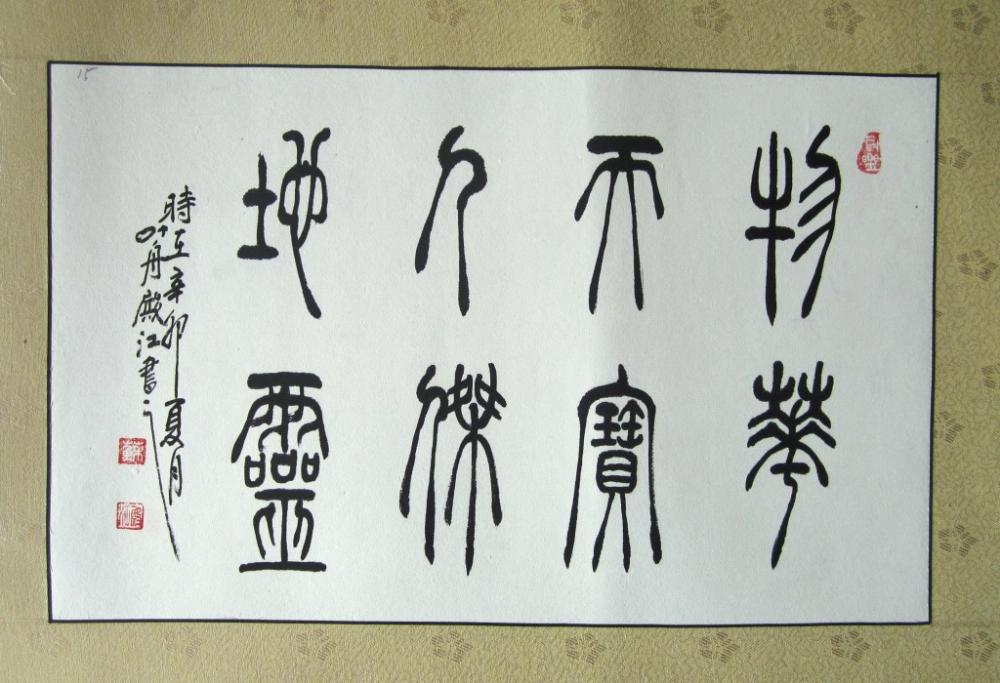 物華
天寶
人傑
地靈
時在辛卯夏月
舟殿江書
15